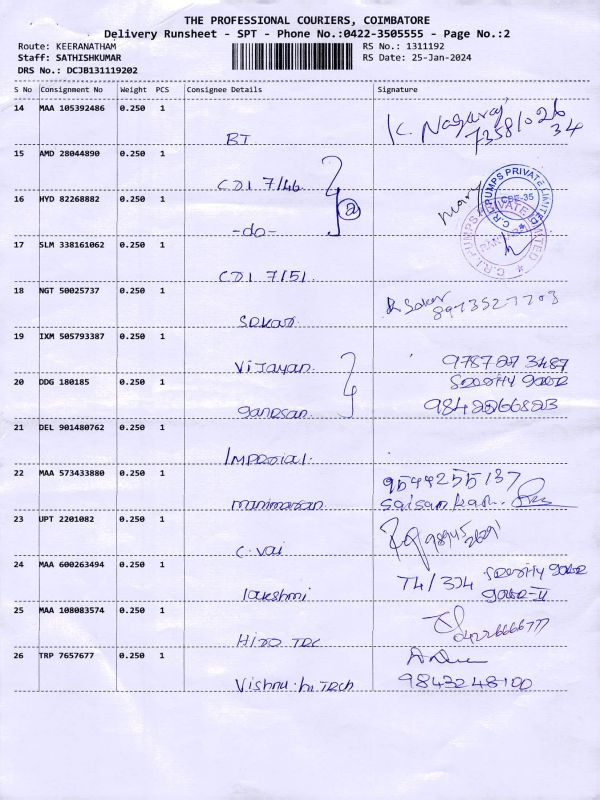 THE PROFESSIONAL COURIERS, COIMBATORE
Delivery Runsheet - SPT - Phone No.:0422-3505555 - Page No.:2
Route: KEERANATHAM RS No.: 1311192
Staff: SATHISHKUMAR RS Date: 25-Jan-2024
DRS No.: DCJB131119202
S No Consignment No Weight PCS Consignee Details Signature
14 MAA 105392486 0.250 1
BT K. Nagaraj 73581026 34
15 AMD 28044890 0.250 1
CDI 7/46
16 HYD 82268882 0.250 1
-do- 2
C.R.I.PUMPS PRIVATE LIMITED
CBE-35
C.R.I.PUMPS PRIVATE LIMITED
17 SLM 338161062 0.250 1
CDI 7/51.
18 NGT 50025737 0.250 1
8973527703
19 IXM 505793387 0.250 1
Vijayan. 9787 227 3487
20 DDG 180185 0.250 1
ganesan.
21 DEL 901480762 0.250 1
Imperial.
22 MAA 573433880 0.250 1
9544255137
manimaran
23 UPT 2201082 0.250 1
C. Vai
24 MAA 600263494 0.250 1
T4/304
lakshmi
25 MAA 108083574 0.250 1
HITO TEC
26 TRP 7657677 0.250 1
Vishnu. hi Tech 9843248100